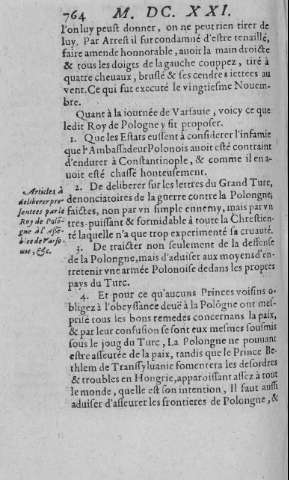 764 M. DC. XXI.
l'on luy peust donner, on ne peut rien tirer de
luy. Par Arrest il fut condamné d'estre tenaillé,
faire amende honnorable, auoir la main droicte
& tous les doigts de la gauche couppez, tiré à
quatre cheuaux, bruslé & ses cendres iettees au
vent. Ce qui fut executé le vingtiesme Nouem-
bre.
Quant à la iournée de Varsauie, voicy ce que
ledit Roy de Pologne y fit proposer.
1. Que les Estats eussent à considerer l'infamie
que l'Ambassadeur Polonois auoit esté contraint
d'endurer à Constantinople, & comme il en a-
uoit esté chassé honteusement.
Articles à
deliberer pre-
sentees par le
Roy de Polo-
gne à l'Assé-
blee de Varso-
uie, &c.
2. De deliberer sur les lettres du Grand Turc,
denonciatoires de la guerre contre la Polongne,
faictes, non par vn simple ennemy, mais par vn
tres-puissant & formidable à toute la Chrestien-
té laquelle n'a que trop experimenté sa cruauté.
3. De traicter non seulement de la deffense
de la Polongne, mais d'aduiser aux moyens d'en-
tretenir vne armée Polonoise dedans les propres
pays du Turc.
4. Et pour ce qu'aucuns Princes voisins o-
bligez à l'obeyssance deuë à la Pologne ont mes-
prisé tous les bons remedes concernans la paix,
& par leur confusion se sont eux mesmes sousmis
sous le joug du Turc, La Polongne ne pouuant
estre asseurée de la paix, tandis que le Prince Be-
thlem de Transsyluanie fomentera les desordres
& troubles en Hongrie, apparoissant assez à tout
le monde, quelle est son intention, Il faut aussi
aduiser d'asseurer les frontieres de Polongne, &